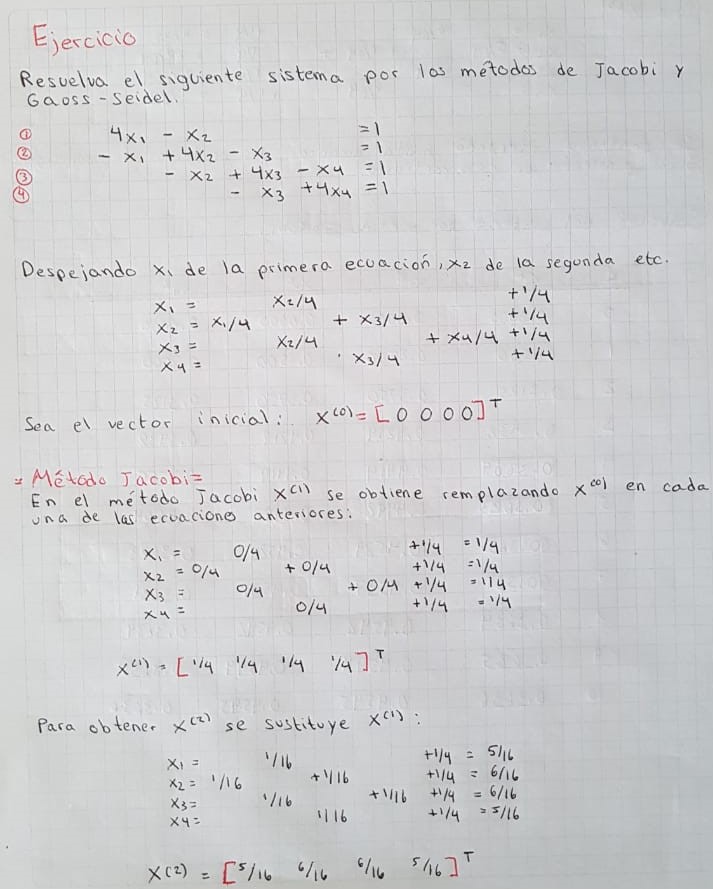 Ejercicio
Resuelva el siguiente sistema por los métodos de Jacobi y
Gaoss-Seidel.
① 4x₁ - x₂ =1
② - x₁ + 4x₂ - x₃ =1
③ - x₂ + 4x₃ - x₄ =1
④ - x₃ +4x₄ =1
Despejando x₁ de la primera ecuación, x₂ de la segunda etc.
x₁ = x₂/4 +1/4
x₂ = x₁/4 + x₃/4 +1/4
x₃ = x₂/4 + x₄/4 +1/4
x₄ = x₃/4 +1/4
Sea el vector inicial: x⁽⁰⁾=[0 0 0 0]ᵀ
= Método Jacobi=
En el método Jacobi x⁽¹⁾ se obtiene remplazando x⁽⁰⁾ en cada
una de las ecuaciones anteriores:
x₁ = 0/4 +1/4 =1/4
x₂ = 0/4 +0/4 +1/4 =1/4
x₃ = 0/4 +0/4 +1/4 =1/4
x₄ = 0/4 +1/4 =1/4
x⁽¹⁾ = [1/4 1/4 1/4 1/4]ᵀ
Para obtener x⁽²⁾ se sustituye x⁽¹⁾:
x₁ = 1/16 +1/4 = 5/16
x₂ = 1/16 +1/16 +1/4 = 6/16
x₃= 1/16 +1/16 +1/4 = 6/16
x₄= 1/16 +1/4 = 5/16
x⁽²⁾ = [5/16 6/16 6/16 5/16]ᵀ